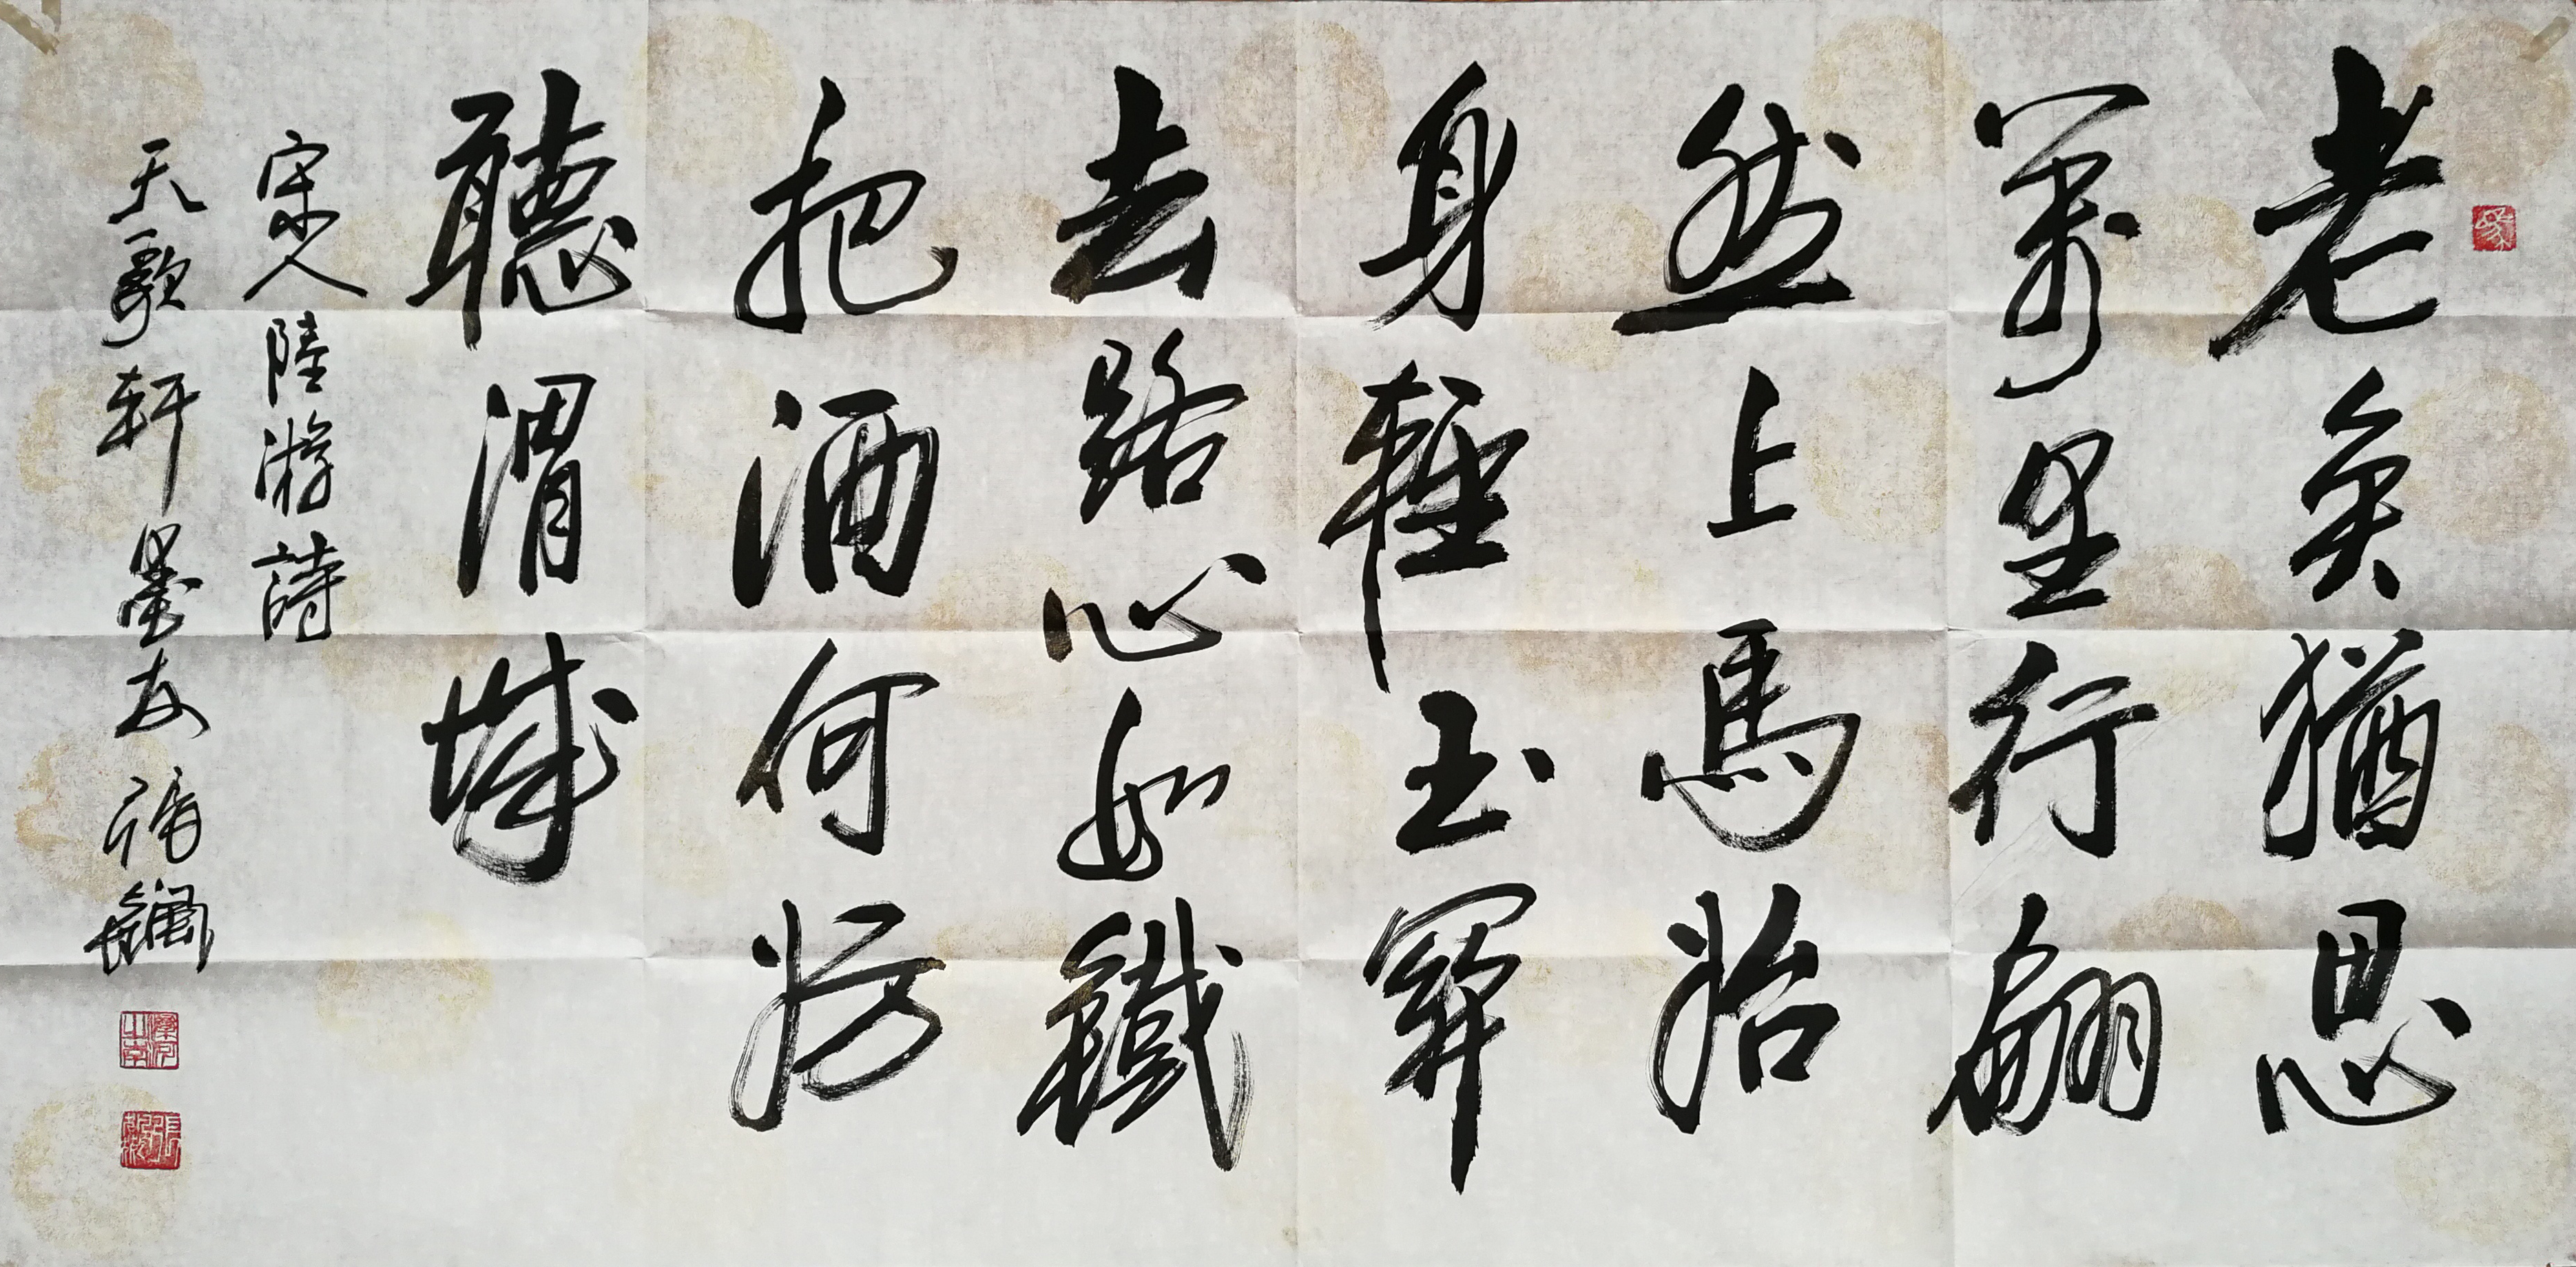 老矣猶思
萬里行翩
然上馬始
身輕玉關
去路心如鐵
把酒何妨
聽渭城
宋人陸游詩
天歌軒墨友